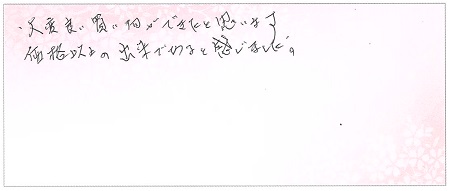 ・大変良い買い物ができたと思います
価格以上の出来であると感じました。